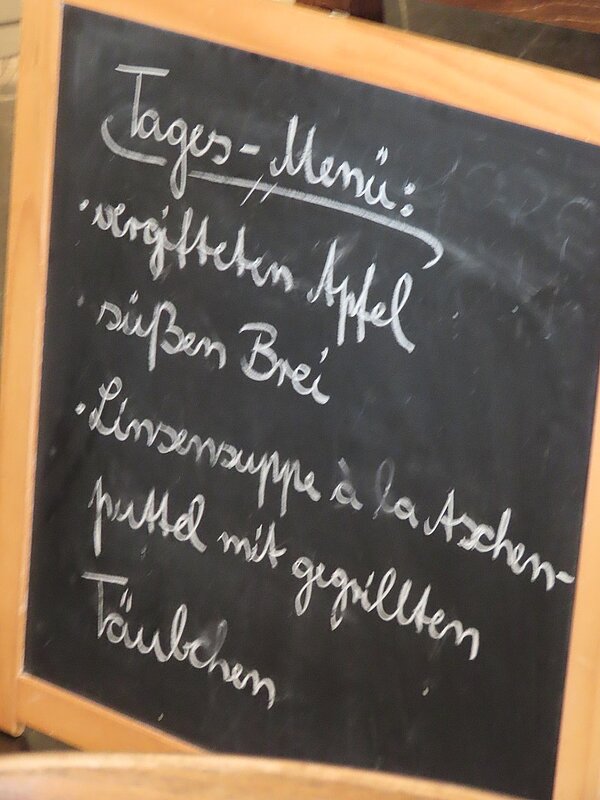 Tages-Menü:
· vergifteten Apfel
· süßen Brei
· Linsensuppe à la Aschen-
puttel mit gegrillten
Täubchen